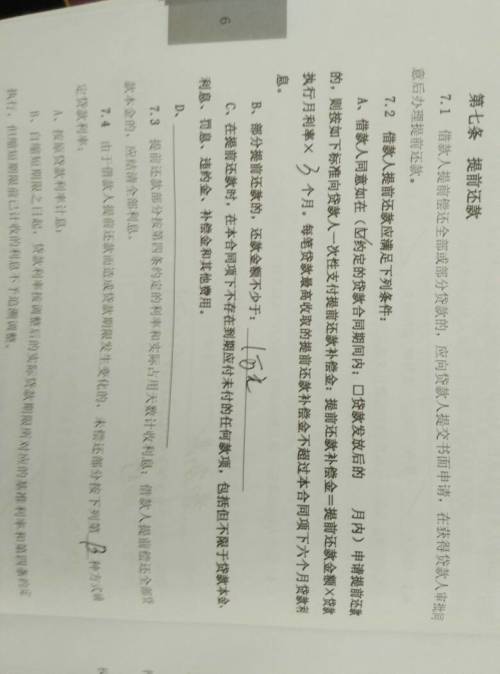 6
第七条 提前还款
7.1 借款人提前偿还全部或部分贷款的，应向贷款人提交书面申请，在获得贷款人审批同
意后办理提前还款。
7.2 借款人提前还款应满足下列条件：
A、借款人同意如在（☑约定的贷款合同期间内；口贷款发放后的 月内）申请提前还款
的，则按如下标准向贷款人一次性支付提前还款补偿金：提前还款补偿金＝提前还款金额×贷款
执行月利率× 3 个月。每笔贷款最高收取的提前还款补偿金不超过本合同项下六个月贷款利
息。
B、部分提前还款的，还款金额不少于：
C、在提前还款时，在本合同项下不存在到期应付未付的任何款项，包括但不限于贷款本金、
利息、罚息、违约金、补偿金和其他费用。
D、
7.3 提前还款部分按第四条约定的利率和实际占用天数计收利息；借款人提前偿还全部贷
款本金的，应结清全部利息。
7.4 由于借款人提前还款而造成贷款期限发生变化的，未偿还部分按下列第 B 种方式确
定贷款利率：
A、按原贷款利率计息；
B、自缩短期限之日起，贷款利率按调整后的实际贷款期限所对应的基准利率和第四条约定
执行，但缩短期限前已计收的利息不予追溯调整。